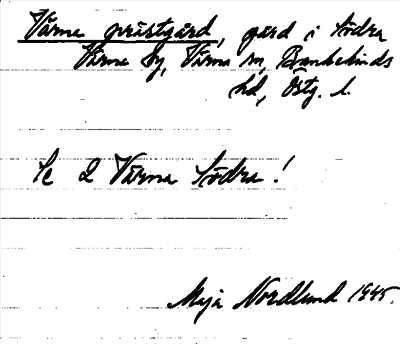 Vårna prästgård, gård i Södra
Vårna by, Vårna sn, Bankekinds
hd, Östg. l.
Se 2 Vårna Södra!
Maja Nordlund 1945.